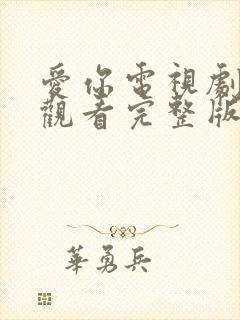 愛你電視劇
觀看完整版
華勇兵